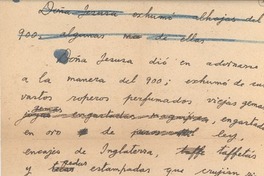 Doña Jesusa exhumó alhajas del
900. algunas mas de ellas.
Doña Jesusa dió en adornarse
a la manera del 900; exhumó de sus
vastos roperos perfumados viejas gemas
joyas engastadas
en oro de ley,
encajes de Inglaterra, taffe taffetás
y sedas estampadas que crujían